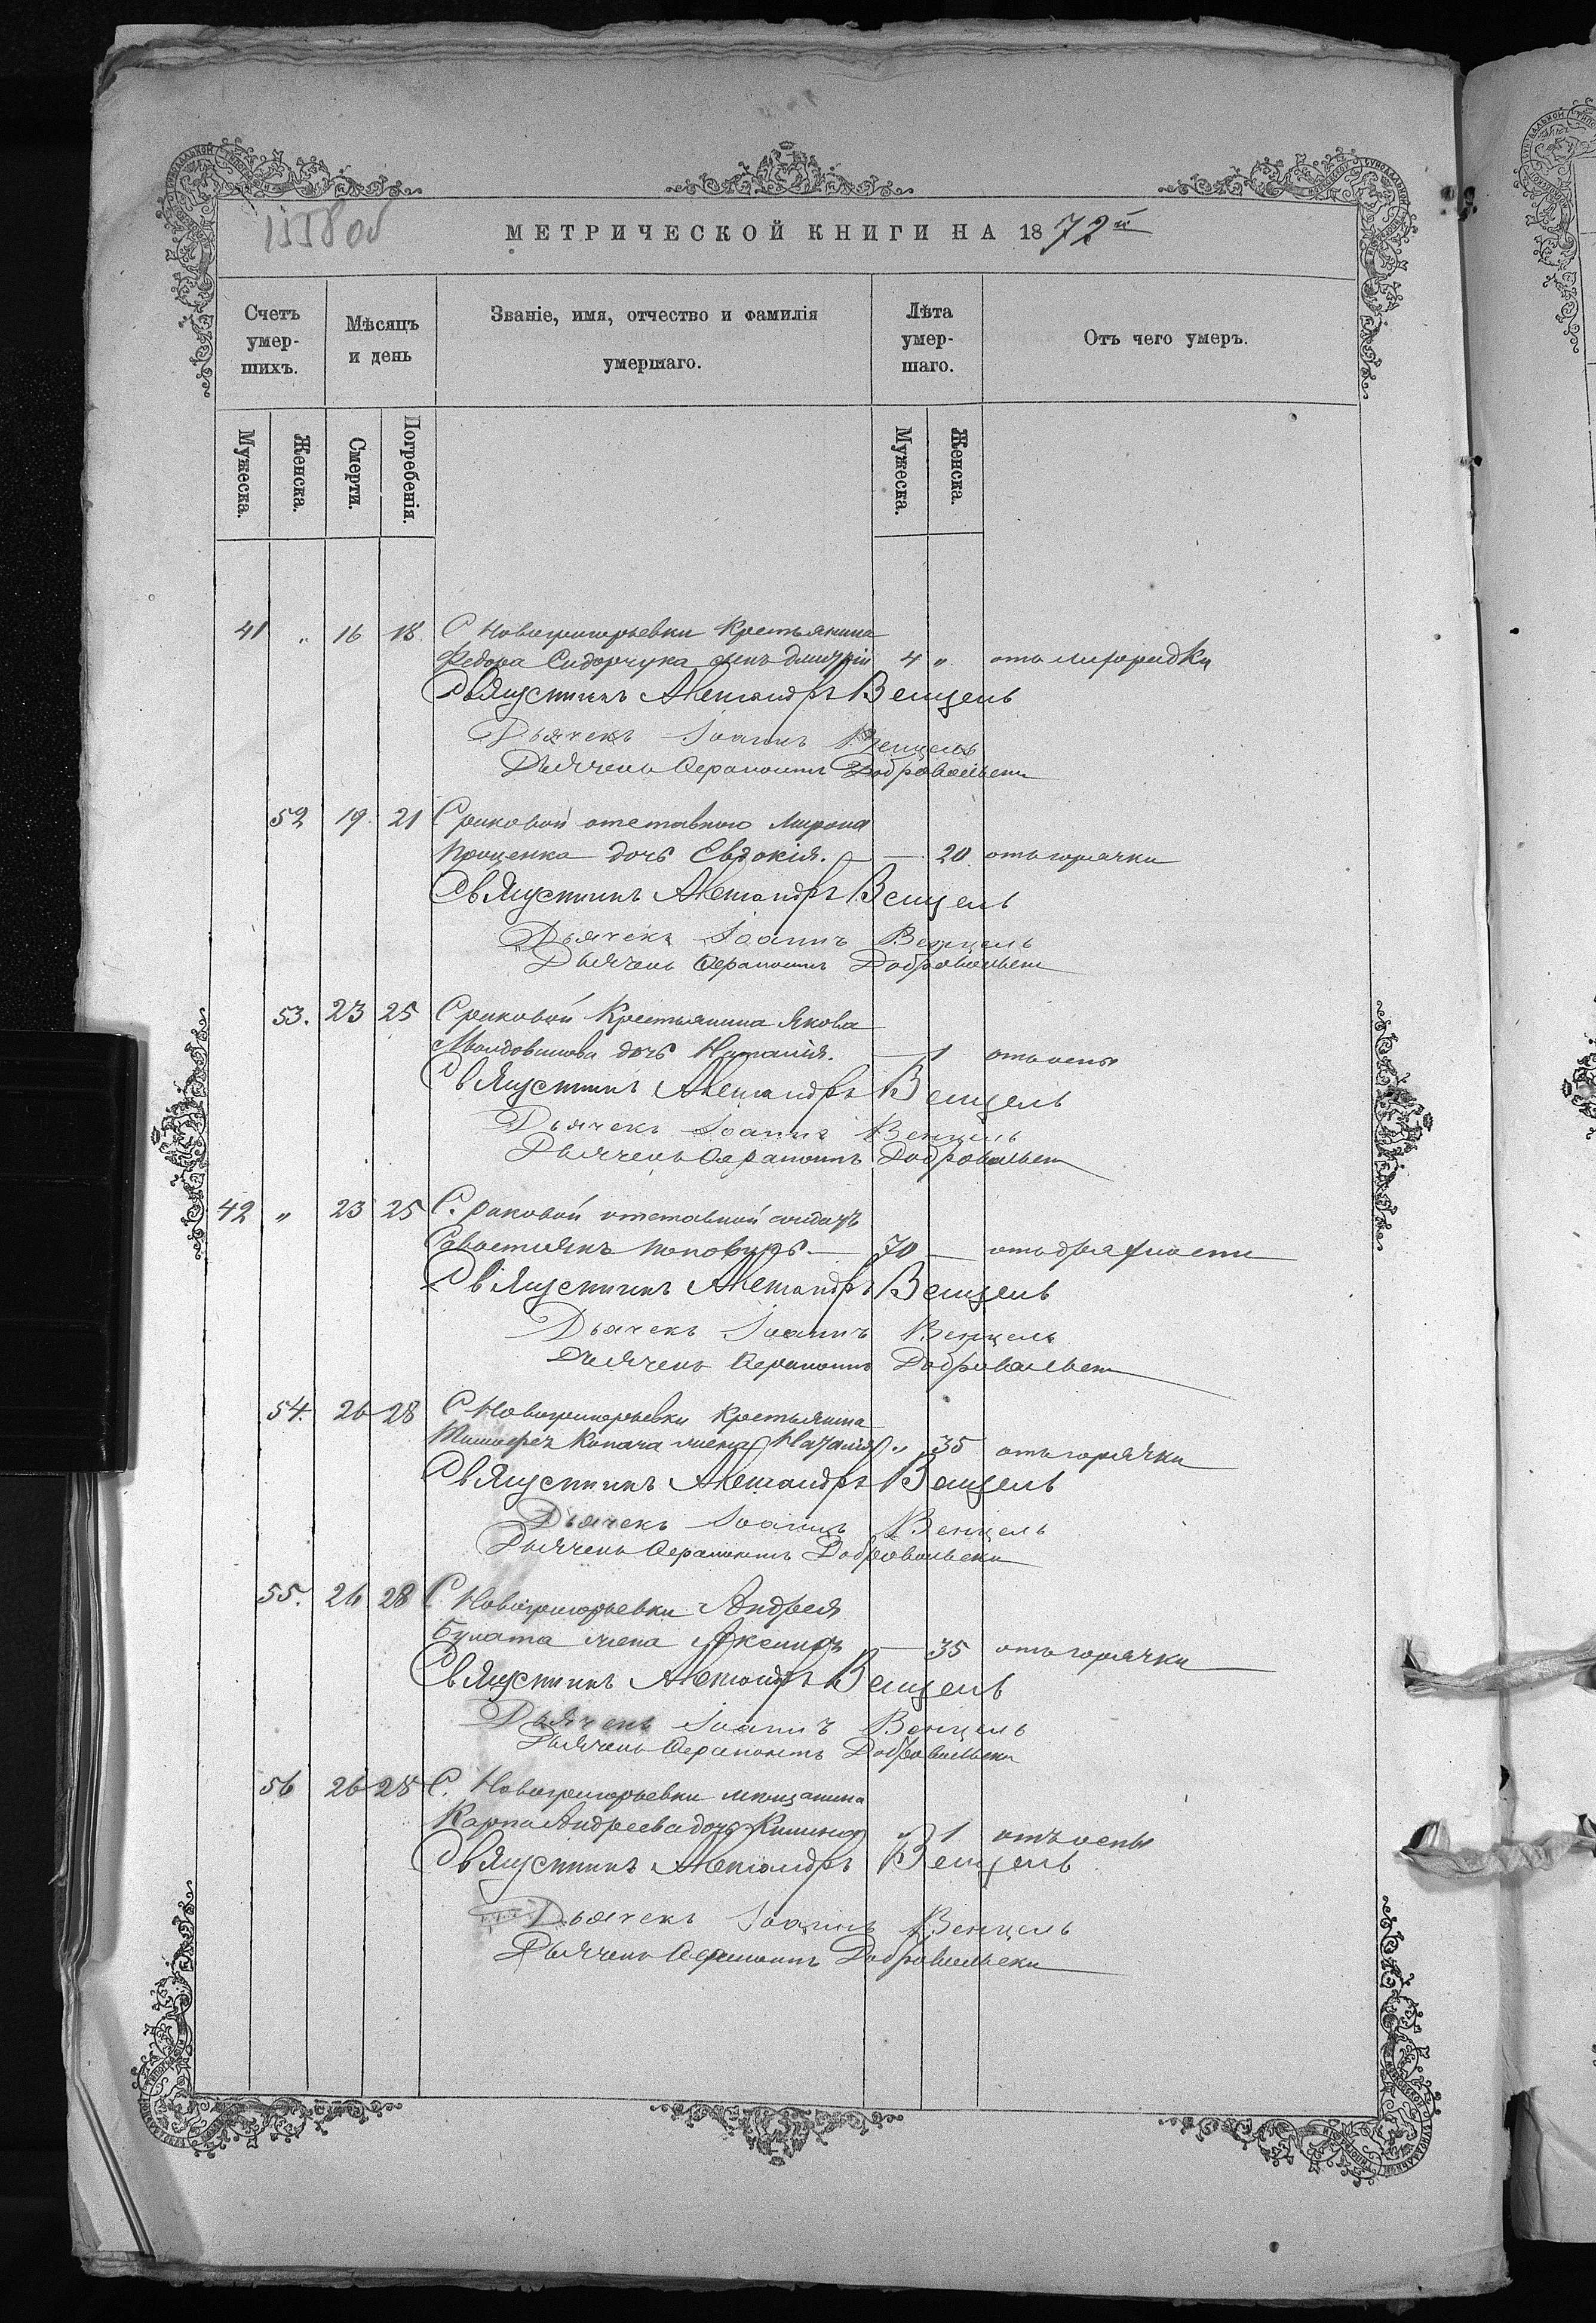 1158 об
МЕТРИЧЕСКОЙ КНИГИ НА 1872й
Счетъ умер-
шихъ.
Мѣсяцъ
и день
Званіе, имя, отчество и фамилія
умершаго.
Лѣта
умер-
шаго.
Отъ чего умеръ.
Мужеска.
Женска.
Смерти.
Погребенія.
Мужеска.
Женска.
41 " 16 18. С Новогригорьевки Крестьянина
Федора Сидорчука сынъ Дмитрій 4 " отъ лихорадки
Священникъ Александръ Венцель
Дьячекъ Іоаннъ Венцель
Дьячекъ Ферапонтъ Добровольскій
52 19. 21 С раковой отставного Мирона
Проценка дочь Евдокія. — 20. отъ горячки
Священникъ Александръ Венцель
Дьячекъ Іоаннъ Венцель
Дьячекъ Ферапонтъ Добровольскій
53. 23 25 С раковой Крестьянина Якова
дочь Наталія. — 1 отъ оспы
Священникъ Александръ Венцель
Дьячекъ Іоаннъ Венцель
Дьячекъ Ферапонтъ Добровольскій
42 " 23 25 С. раковой отставной солдатъ
Савостіянъ — 70 — отъ дряхлости
Священникъ Александръ Венцель
Дьячекъ Іоаннъ Венцель
Дьячекъ Ферапонтъ Добровольскій
54. 26 28 С Новогригорьевки Крестьянина
Копача жена Наталія " 35 отъ горячки
Священникъ Александръ Венцель
Дьячекъ Іоаннъ Венцель
Дьячекъ Ферапонтъ Добровольскій
55. 26 28 С Новогригорьевки Андрея
Булата жена — 35 отъ горячки
Священникъ Александръ Венцель
Дьячекъ Іоаннъ Венцель
Дьячекъ Ферапонтъ Добровольскій
56 26 28 С. Новогригорьевки мещанина
Карпа Андреева дочь " 1 отъ оспы
Священникъ Александръ Венцель
Дьячекъ Іоаннъ Венцель
Дьячекъ Ферапонтъ Добровольскій